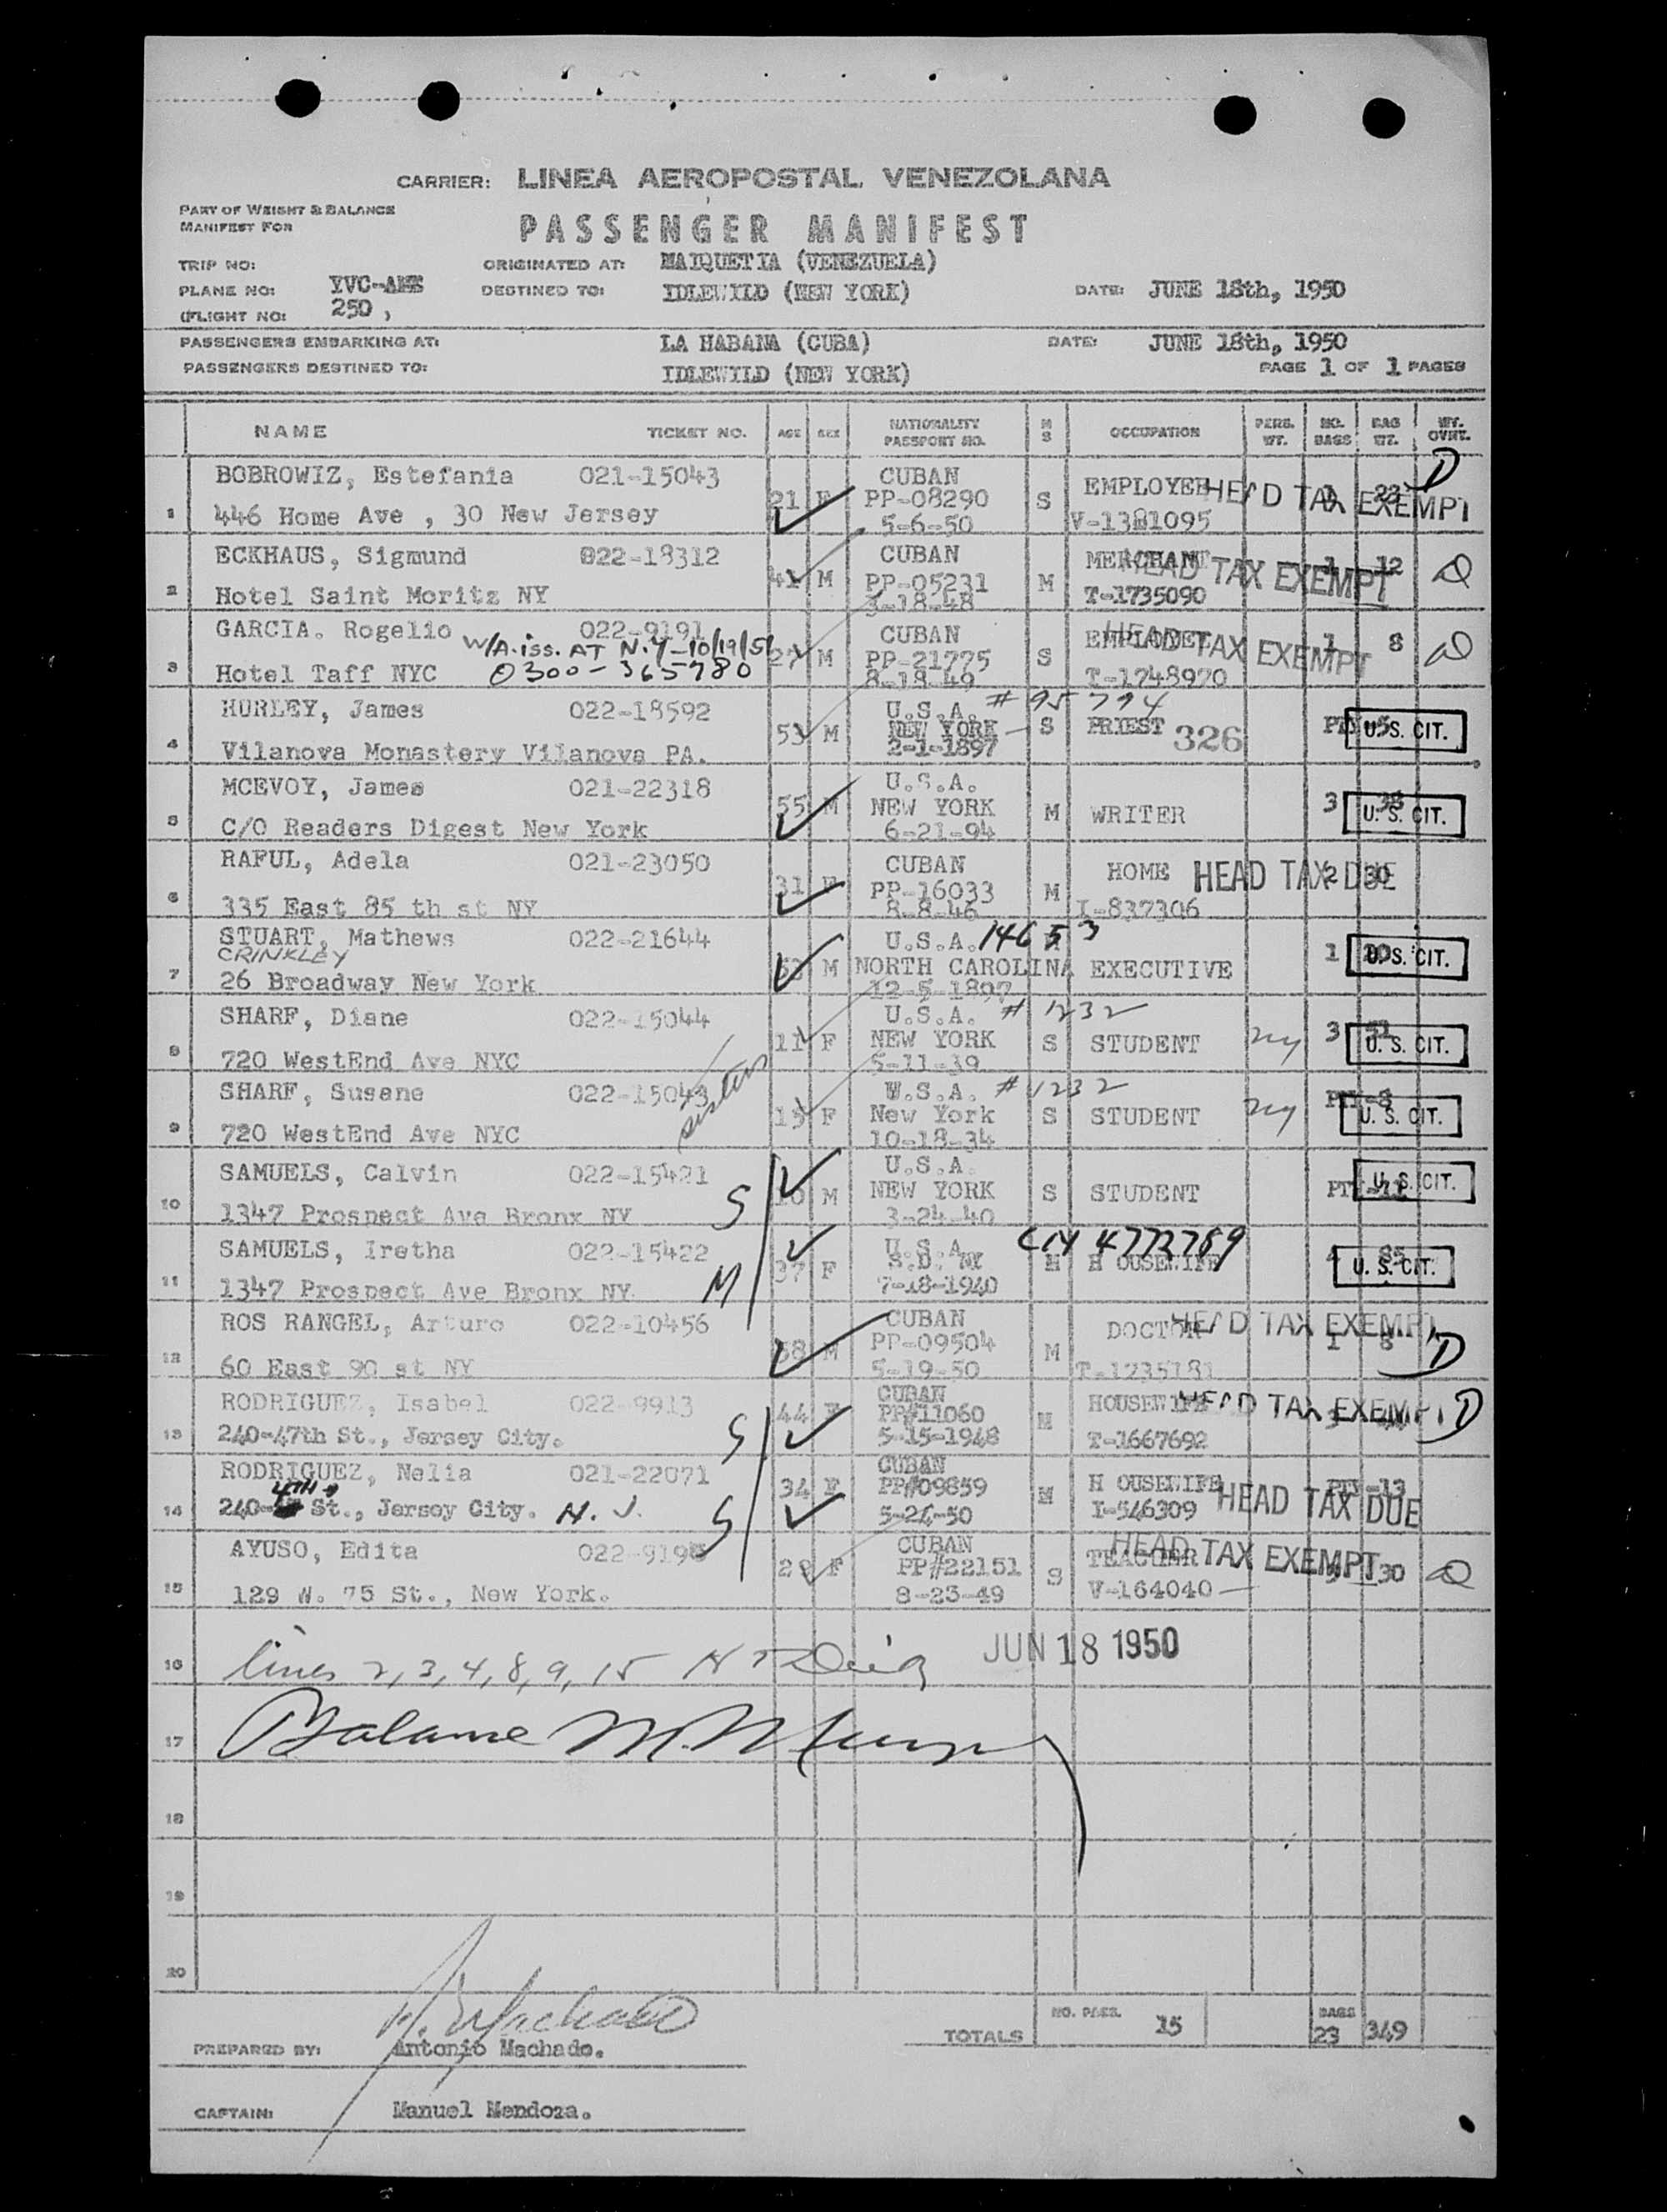 CARRIER: LINEA AEROPOSTAL VENEZOLANA
PART OF WEIGHT & BALANCE
MANIFEST FOR
PASSENGER MANIFEST
TRIP NO:
ORIGINATED AT: MAIQUETIA (VENEZUELA)
PLANE NO: YVC-AME
DESTINED TO: IDLEWILD (NEW YORK)
DATE: JUNE 18th, 1950
(FLIGHT NO: 250 )
PASSENGERS EMBARKING AT: LA HABANA (CUBA)
DATE: JUNE 18th, 1950
PASSENGERS DESTINED TO: IDLEWILD (NEW YORK)
PAGE 1 OF 1 PAGES
NAME TICKET NO. AGE SEX NATIONALITY PASSPORT NO. M S OCCUPATION PERS. WT. NO. BAGS BAG WT. WT. OVHT.
BOBROWIZ, Estefania 021-15043 CUBAN D
21 F PP-08290 S EMPLOYEE HEAD TAX EXEMPT 1 23
1 446 Home Ave , 30 New Jersey 5-6-50 V-1381095
ECKHAUS, Sigmund 022-18312 CUBAN MERCHANT HEAD TAX EXEMPT 1 12 D
41 M PP-05231 M
2 Hotel Saint Moritz NY 3-18-48 T-1735090
GARCIA. Rogelio 022-9191 CUBAN EMPLOYEE HEAD TAX EXEMPT 1 8 D
W/A.iss. AT N.Y-10/19/51
27 M PP-21775 S
3 Hotel Taff NYC 0300-365780 8-18-49 T-1748970
HURLEY, James 022-18592 U.S.A. # 95794
53 M NEW YORK S PRIEST 326 U.S. CIT.
4 Vilanova Monastery Vilanova PA. 2-1-1897
MCEVOY, James 021-22318 U.S.A.
55 M NEW YORK M WRITER 3 38 U. S. CIT.
5 C/O Readers Digest New York 6-21-94
RAFUL, Adela 021-23050 CUBAN HOME HEAD TAX DUE 2 30
31 F PP-16033 M
6 335 East 85 th st NY 8-8-46 I-837306
STUART, Mathews 022-21644 U.S.A. 14653
CRINKLEY
53 M NORTH CAROLINA EXECUTIVE 1 20 U. S. CIT.
7 26 Broadway New York 12-5-1897
SHARF, Diane 022-15044 U.S.A. # 1232
11 F NEW YORK S STUDENT ny 3 51 U. S. CIT.
8 720 WestEnd Ave NYC 5-11-39
sisters
SHARF, Susane 022-15043 U.S.A. # 1232
15 F New York S STUDENT ny PTY-8 U. S. CIT.
9 720 WestEnd Ave NYC 10-18-34
SAMUELS, Calvin 022-15421 U.S.A.
10 M NEW YORK S STUDENT PTY-11 U. S. CIT.
10 1347 Prospect Ave Bronx NY S 3-24-40
SAMUELS, Iretha 022-15422 U.S.A. 4773769
37 F S.D. NY M H OUSEWIFE 4 85 U. S. CIT.
11 1347 Prospect Ave Bronx NY M 7-18-1940
ROS RANGEL, Arturo 022-10456 CUBAN DOCTOR HEAD TAX EXEMPT
38 M PP-09504 M 1 8 D
12 60 East 90 st NY 5-19-50 T-1235181
RODRIGUEZ, Isabel 022-9913 CUBAN HOUSEWIFE HEAD TAX EXEMPT D
44 F PP#11060 M 3
13 240-47th St., Jersey City. S 5-15-1948 T-1667692
RODRIGUEZ, Nelia 021-22071 CUBAN
34 F PP#09859 M H OUSEWIFE PTY-13
47th
14 240- St., Jersey City. N. J. S 5-24-50 I-546309 HEAD TAX DUE
AYUSO, Edita 022-9196 CUBAN HEAD TAX EXEMPT
28 F PP#22151 S TEACHER 3 30 D
15 129 W. 75 St., New York. 8-23-49 V-164040
16 lines 2, 3, 4, 8, 9, 15 JUN 18 1950
17 Balance
18
19
20
TOTALS NO. PASS. 15 BAGS 23 349
PREPARED BY: Antonio Machado.
CAPTAIN: Manuel Mendoza.